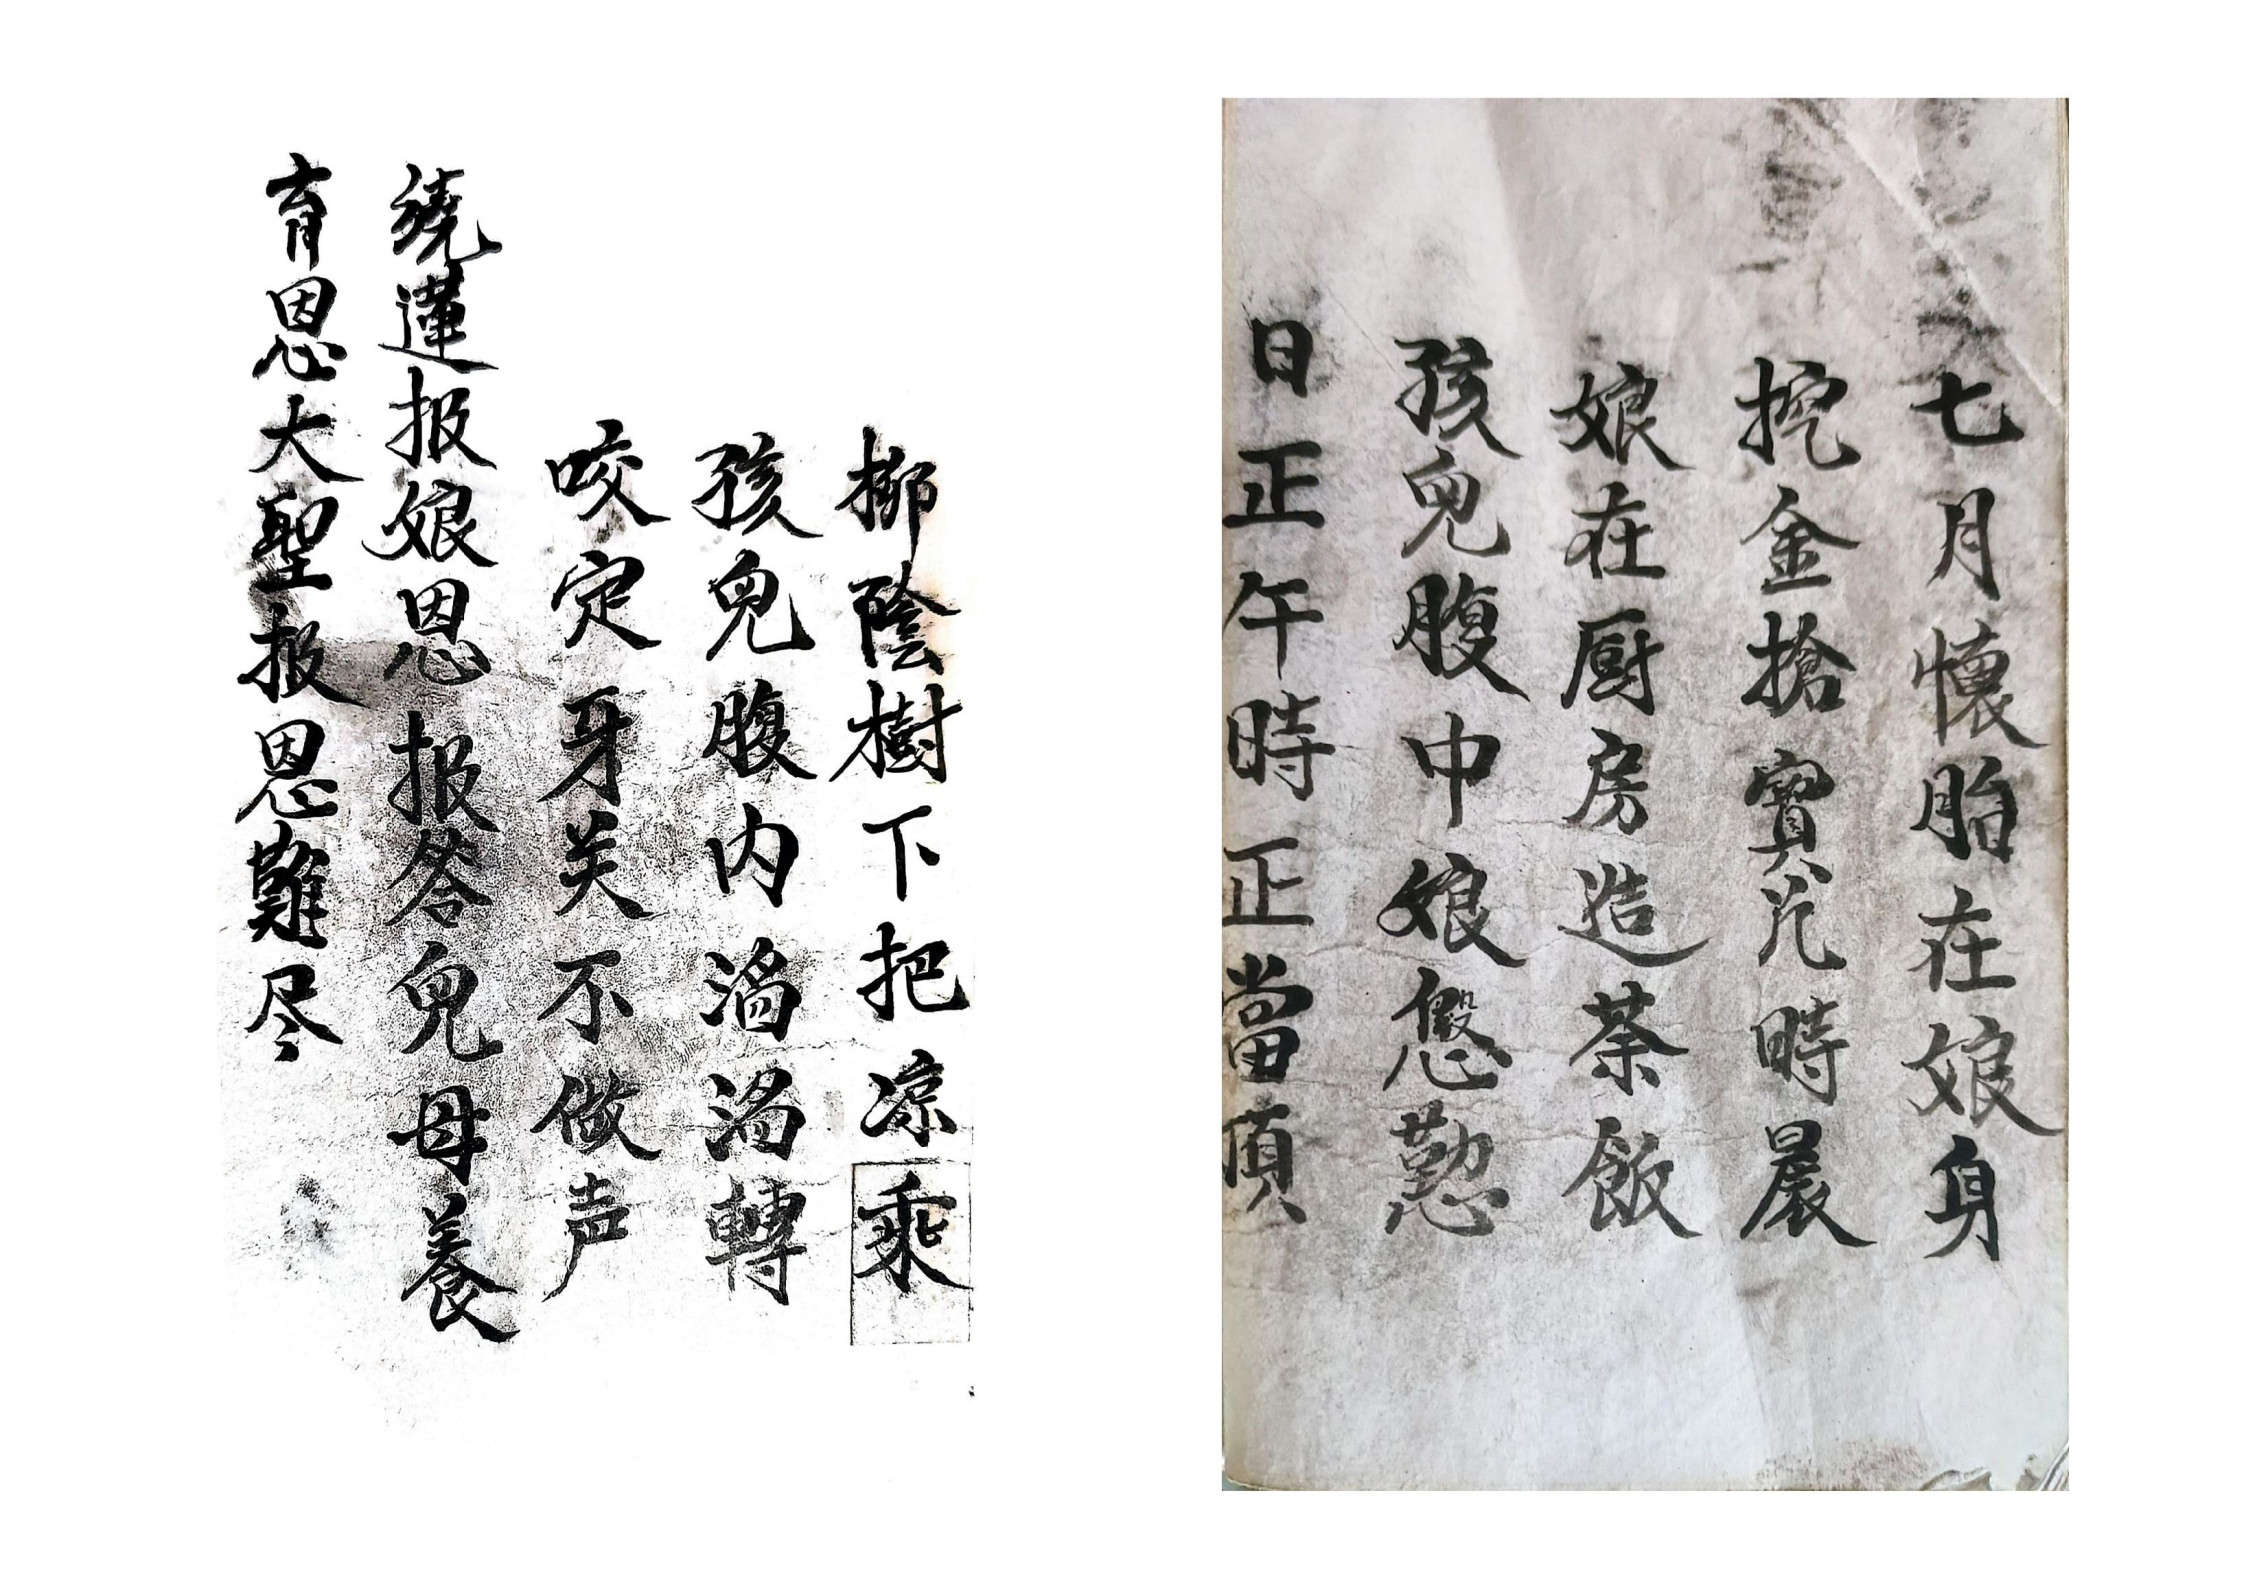 七月懷胎在娘身
挖金搶寳凡時晨
娘在厨房造茶飯
孩兒腹中娘慇懃
日正午時正當頂
挷陰樹下把凉乘
孩兒腹内滔滔轉
咬定牙关不做声
繞蓮报娘恩报答兒母養
育恩大聖报恩難尽